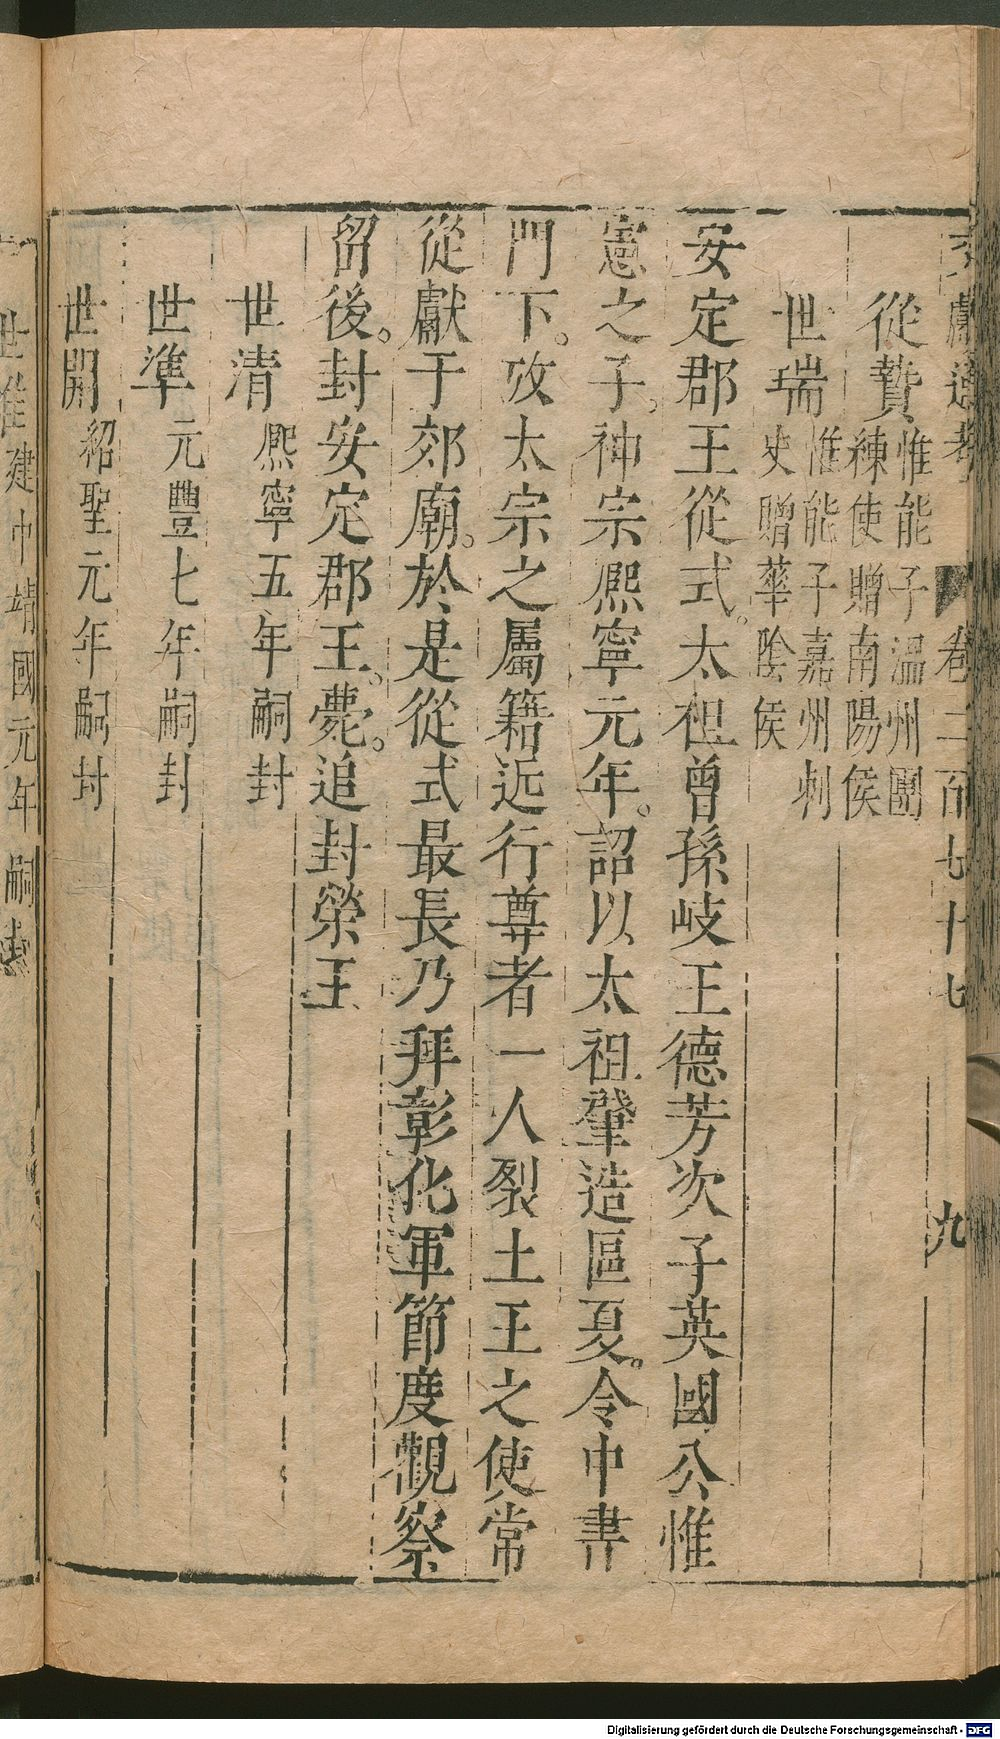 文獻通考 卷二百七十七 九
從贄 惟能子溫州團
練使贈南陽侯
世瑞 惟能子嘉州刺
史贈華陰侯
安定郡王從式。太祖曾孫岐王德芳次子英國公惟
憲之子。神宗熈寧元年。詔以太祖肇造區夏。令中書
門下。攷太宗之屬籍近行尊者一人裂土王之使常
從獻于郊廟。於是從式最長乃拜彰化軍節度觀察
留後。封安定郡王。薨。追封榮王
世清 熈寧五年嗣封
世準 元豐七年嗣封
世開 紹聖元年嗣封
世雄 建中靖國元年嗣封
Digitalisierung gefördert durch die Deutsche Forschungsgemeinschaft - DFG